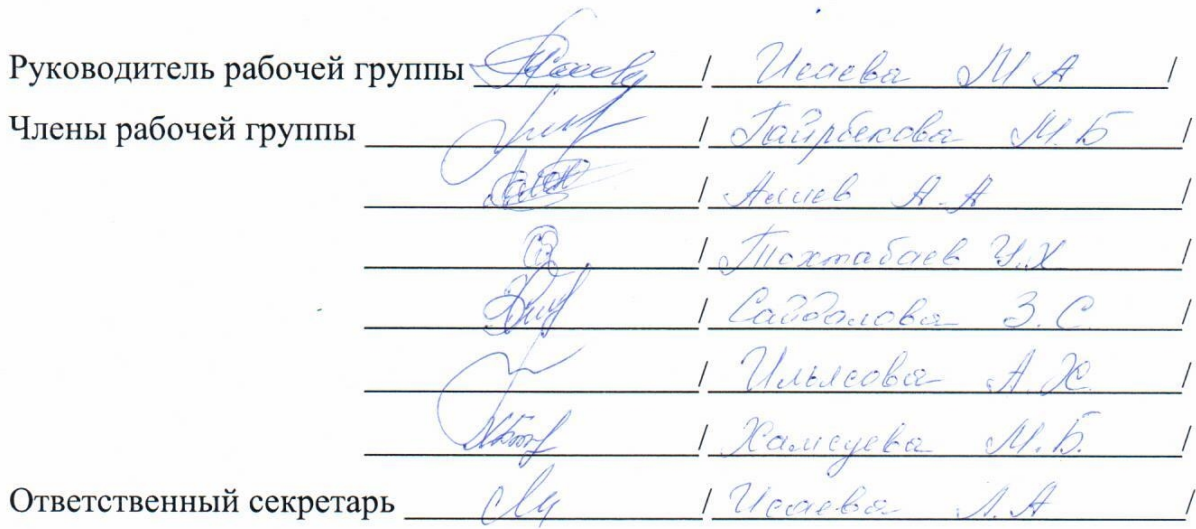 Руководитель рабочей группы / Исаева М А /
Члены рабочей группы / Гайрбекова М.Б /
/ Алиев А.А /
/ Тохтабаев У.Х /
/ Сайдалова З.С. /
/ Ильясова А.Ж. /
/ Хамсуева М.Б. /
Ответственный секретарь / Исаева Л.А /